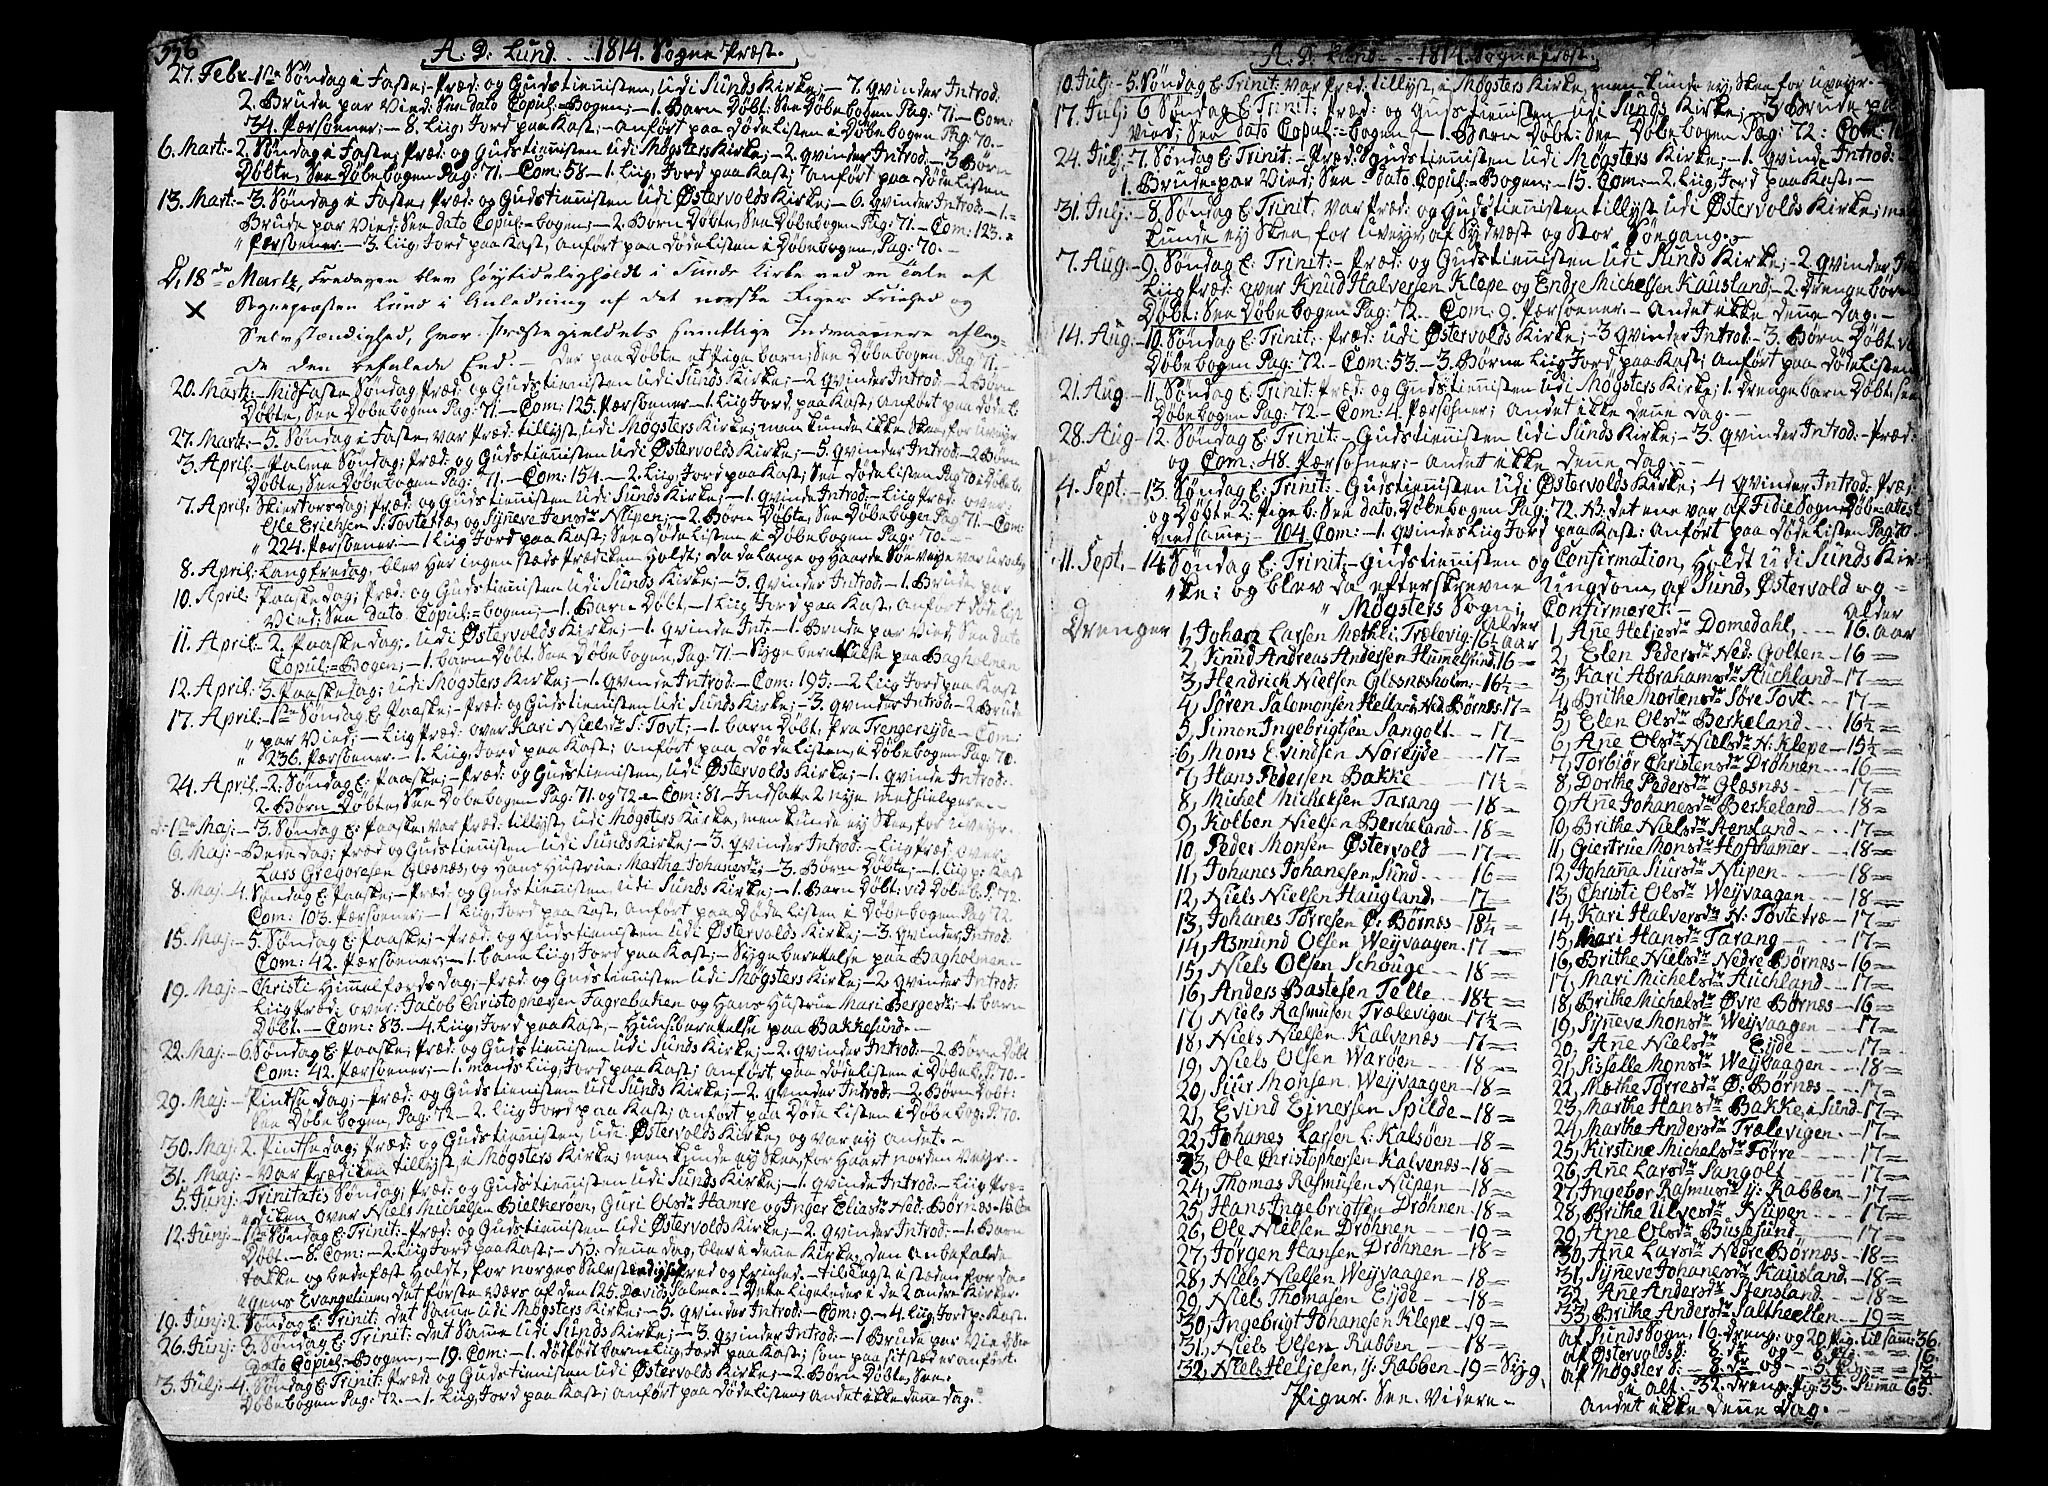 556
A: D: Lund - - 1814. Sogne Præst.
27. Febr. 1ste Søndag i Faste; - Præd: og Gudstienisten, udi Sunds Kirke; - 7. qvinder Introd.
2. Brude par Vied: See dato Copul:=Bogen; - 1. Barn Døbt: See Døbebogen Pag: 71. - Com:
34. Pærsoener; - 8. Liig, Jord paa Kast; - Anført paa Døde Listen i Døbebogen Pag: 70. -
6. Mart: - 2. Søndag i Faste; Præd: og Gudstienisten udi Møgsters Kirke; - 2. qvinder Introd. - 3. Børn
Døbte, See Døbebogen Pag: 71. - Com: 58 - 1. Liig, Jord paa Kast; anført paa Døde Listen
13. Mart: - 3. Søndag i Faste, Præd: og Gudstienisten udi Østervolds Kirke; - 6. qvinder Introd - 1.
Brude par Vied: See dato Copul=bogen; - 2. Børn Døbte, See Døbebogen Pag: 71. - Com: 123.
" Pærsoener. - 3. Liig, Jord paa Kast, anført paa Døde Listen i Døbebogen, Pag: 70. -
D. 18de Martz, Fredagen blev høytideligholdt i Sunds Kirke ved en Tale af
Sognepræsten Lund i Anledning af det norske Riges Friehed og
Selvstændighed, hvor Præstegieldets samtlige Indvaanere aflag-
de den befalede Eed. - Der paa Døbte et Pige barn; See Døbebogen Pag 71. -
20. Martz: - Midfaste Søndag, Præd: og Gudstienisten udi Sunds Kirke; - 2 qvinder Introd: - 2 Børn
Døbte, See Døbebogen Pag: 71. - Com: 125. Pærsoener - 1. Liig Jord paa Kast; Anført paa døde L:
27. Martz: - 5. Søndag i Faste, var Præd: tillyst, udi Møgsters Kirke; men kunde ikke Skee, for uveyr
3. April: - Palme Søndag; Præd: og Gudstienisten udi Østervolds Kirke; - 5. qvinder Introd: - 2 Børn
Døbte, See Døbebogen Pag: 71. - Com: 154. - 2. Liig Jord paa Kast; See døde Listen Pag 70 i Døbeb:
7. April, Skiertorsdag; Præd: og Gudstienisten udi Sunds Kirke; - 1. qvinde Introd: - Liig Præd. over:
Ole Erichsen S: Tovteræ, og Syneve Jensdr Nipen; - 2. Børn Døbte, See Døbebogen Pag: 71. - Com:
" 224. Pærsoener - 1 Liig Jord paa Kast; See Døde Listen i Døbebogen Pag: 70. -
8. April: Langfredag, blev her ingen stæds Prædiken Holdt; da de lange og Haarde Søeveye var
10. April: Paaske dag; Præd: og Gudstienisten udi Sunds Kirke; - 3. qvinder Introd: - 1. Brude par
Vied; See dato Copul=bogen; - 1. Barn Døbt, - 1 Liig Jord paa Kast, Anført døde List.
11. April: - 2. Paaske dag; udi Østervolds Kirke; - 1. qvinde Int: - 1. Brude par Vied, See dato
Copul:=Bogen; - 1. barn Døbt. See Døbebogen, Pag: 71 - Syge berettelse paa Bagholmen
12. April: 3. Paaskedag; udi Møgsters Kirke; - 1. qvinde Introd: - Com: 195: - 2. Liig Jord paa Kast
17. April: - 1ste Søndag E: Paaske; - Præd: og Gudstienisten udi Sunds Kirke; - 3. qvinder Introd: - 2 Brude
" par Vied; - Liig Præd: over Kari Nielsdr S: Tovt; - 1. barn Døbt, fra Trengereyde - Com:
" 236. Pærsoener. - 1. Liig, Jord paa Kast; anført paa Døde Listen, i Døbebogen Pag: 70.
24. April - 2. Søndag E: Paaske; - Præd: og Gudstienisten, udi Østervolds Kirke; - 1. qvinde Introd: -
2. Børn Døbte, See Døbebogen Pag: 71. og 72. - Com: 81. - Indsatte 2 nye medhielpere. -
1ste Maj: - 3. Søndag E: Paaske, var Præd: tillyst, udi Møgsters Kirke, men kunde ey Skee, for uveyr.
6. Maj: - Bededag; Præd og Gudstienisten udi Sunds Kirke; - 3. qvinder Introd: - Liig Præd. over
Lars Gregorsen Glesnæs, og Hans Hustrue Martha Johanesdr; - 3. Børn Døbte, - 1. Liig p: Kast
8. Maj. - 4. Søndag E: Paaske; - Præd: og Gudstienisten udi Sunds Kirke; - 1. Barn Døbt. vid Døbeb. P: 72.
Com: 103. Pærsoener; - 1 Liig, Jord paa Kast, Anført paa Døde Listen i Døbebogen Pag 72.
15. Maj: - 5. Søndag E: Paaske; - Præd: og Gudstienisten udi Østervolds Kirke; - 3. qvinder Introd:
Com: 42. Pærsoener; - 1. barne Liig, Jord paa Kast; - Syge berettelse paa Bagholmen. -
19. Maj: - Christi Himmelfærds dag; Præd: og Gudstienisten udi Møgsters Kirke; - 2 qvinder Introd:
Liig Præd: over: Jacob Christophersen Fagrebakken og Hans Hustrue Mari Bergesdr; 1. barn
Døbt. - Com: 83. - 4. Liig, Jord paa Kast, - Huusberettelse paa Bakkesund. -
22. Maj: - 6. Søndag E: Paaske; Præd: og Gudstienisten udi Sunds Kirke; - 2. qvinder Introd: - 2. Børn Døbt
Com: 42. Pærsoener; - 1. mands Liig, Jord paa Kast; anført, paa Døde Listen i Døbeb: P: 70. -
29. Maj: - Pintse dag; - Præd: og Gudstienisten udi Sunds Kirke; - 2. qvinder Introd: - 2. Børn Døbt:
See Døbebogen, Pag: 72 - 2. Liig Jord paa Kast; anført paa Døde Listen i Døbebog: P. 70.
30. Maj: 2. Pintse dag; Præd: og Gudstienisten, udi Østervolds Kirke, og var ey andet. -
31. Maj: - var Prædiken tillyst, i Møgsters Kirke; men kunde ey Skee, for Haart norden Veyr. -
5. Junj: Trinitatis Søndag; Præd: og Gudstienisten udi Sunds Kirke; - 1. qvinde Introd: - Liig Præ=
ædiken over Niels Michelsen Bielkerøen, Guri Olsdr Hamre og Inger Eliasdr Ned. Børnes - 15 Com
12. Junj: - 1ste Søndag E: Trinit: Præd: og Gudstienisten udi Østervolds Kirke; - 2. qvinder Introd: - 1. Barn
Døbt. - 8. Com: - 2. Liig Jord paa Kast; - NB: denne dag, blev i denne Kirke, den anbefalde
takke og bedefæst Holdt, for norges Selvstændighed fred og friehed. - tillægst istæden for da=
=gens Evangelium, det første værs af den 125. Davids Psalme. - Dette ligeledes i de 2 andre Kirker
19. Junj: 2. Søndag E: Trinit: det Same udi Møgsters Kirke; - 5. qvinder Introd: - Com: 9. - 4. Liig, Jord p: Kast.
26. Junj: 3. Søndag E: Trinit: det Same udi Sunds Kirke; - 3. qvinder Introd: - 1 Brude par Vied See
Dato Copul:=Bogen, - 19. Com: - 1. dødfødt barne Liig, Jord paa Kast; som paa sit stæd er anført.
3. Julj: - 4. Søndag E: Trinit: Præd: og Gudstienisten udi Østervolds Kirke; - 2. Børn Døbte, See:
Døbebogen Pag: 72. - 1. Liig, Jord paa Kast; anført paa Døde Listen, Andet ikke denne dag. -
A: D: Lund - - 1814. Sogne Præst.
10. Julj: - 5. Søndag E. Trinit: var Præd: tillyst, i Møgsters Kirke, men kunde ey Skee for uveyr. -
17. Julj: 6. Søndag E. Trinit: Præd: og Gudstienisten udi Sunds Kirke; - 3 Brude par
Vied; See dato Copul:=bogen - 1. Børn Døbt: See Døbebogen Pag: 72: Com:
24. Julj: - 7. Søndag E: Trinit: - Præd: Gudstienisten udi Møgsters Kirke; - 1. qvinde Introd:
1. Brude=par Vied; See Dato Copul:=Bogen; - 15. Com: - 2. Liig, Jord paa Kast. -
31. Julj: - 8. Søndag E: Trinit: var Præd: og Gudstienisten tillyst udi Østervolds Kirke; men
kunde ey Skee, for uveyr, af Sydvæst og Stor Søegang. -
7. Aug - 9. Søndag E: Trinit: - Præd: og Gudstienisten udi Sunds Kirke; - 2. qvinder Int
Liig Præd: over Knud Halversen Klepe og Endre Michelsen Kausland, - 2. Drengebørn
Døbt: See Døbebogen Pag: 72. - Com: 9. Pærsoener - Andet ikke denne Dag. -
14. Aug: - 10. Søndag E: Trinit: - Præd: udi Østervolds Kirke; - 3 qvinder Introd: - 3. Børn Døbt.
Døbebogen Pag: 72. - Com: 53. - 3. Børne Liig Jord paa Kast; Anført paa døde Listen
21. Aug - 11. Søndag E: Trinit: Præd: og Gudstienisten udi Møgsters Kirke; 1. Drenge barn Døbt. See
Døbebogen Pag: 72 - Com: 4. Pærsoner; Andet ikke denne dag. -
28. Aug - 12. Søndag E: Trinit: - Gudstienisten udi Sunds Kirke; - 3. qvinder Introd: - Præd:
og Com: 48. Pærsoener; - andet ikke denne dag; -
4. Sept: - 13. Søndag E: Trinit: - Gudstienisten udi Østervolds Kirke; - 4 qvinder Introd: Præd:
og Døbte 2. Pige b. See dato. Døbebogen Pag: 72. NB. det ene var af Fidie Sogn Døbe=atest
med same; - 104. Com: - 1. qvindes Liig Jord paa Kast: Anført paa Døde Listen Pag: 70 -
11. Sept. - 14. Søndag E: Trinit; - gudstienisten og Confirmation, Holdt udi Sunds Kir=
=ke; og blev da efterskrevne ungdom, af Sund, Østervold og =
" Møgsters Sogn; Confirmeret. -
Drenger
Alder
1, Johan Larsen Mæthli: Trælevig. 16½ aar
2, Knud Andreas Andersen Hummelsund, 16 =
3, Hendrick Nielsen Glæsnæsholm: 16½ -
4, Søren Salomonsen Hellard Ned. Børnes. 17 =
5, Simon Ingebrigtsen Sangolt. - 17 =
6, Mons Evindsen Noreyde - - 17 =
7, Hans Pedersen Bakke - - - 17½ =
8, Michel Michelsen Tarang - - 18 =
9, Kolben Nielsen Bercheland - - 18 =
10, Peder Monsen Østervold - - 17 =
11, Johanes Johanesen, Sund - - 16 =
12, Niels Nielsen Haugland, - - 17 =
13, Johanes Torresen Ø: Børnæs - 18½ =
14, Asmund Olsen Weyvaagen - 17 =
15, Niels Olsen Schouge - - - 18 =
16, Anders Bastesen Telle - - 18½ =
17, Niels Rasmusen Trælevigen - 17½ =
18, Niels Nielsen Kalvenæs - - 17 =
19, Niels Olsen Warøen - - - 18 =
20, Siur Monsen Weyvaagen - 18 =
21, Evind Ejnersen Spilde - 18 =
22, Johanes Larsen L: Kalsøen - 18 =
23, Ole Christophersen Kalvenæs - 18 =
24, Thomas Rasmusen Nipen - 18 =
25, Hans Ingebrigtsen Drøhnen - 18 =
26, Ole Nielsen Drøhnen - - 19 =
27, Jørgen Hansen Drøhnen - - 18 =
28, Niels Nielsen Weyvaagen - - 18 =
29, Niels Thomasen Eijde - - 18 =
30, Ingebrigt Johanesen Klepe - 19 =
31, Niels Olsen Rabben - - 18 =
32, Niels Heljesen, ij: Rabben - 19 =
Piger. See. Videre. -
Alder
1, Ane Heljesdr Domedahl, - - 16. aar
2, Elen Pedersdr Ned: Golten - 16 =
3, Kari Abrahamsdr Auchland - 17 =
4, Brithe Mortensdr Søre Tovt - 17 =
5, Elen Olsdr Berkeland - - 16½ =
6, Ane Olsdr Nielsdr N: Klepe - 15½ =
7, Torbiør Christensdr Drøhnen - - 16 =
8, Dorthe Pedersdr Glæsnæs - - 17 =
9, Ane Johanesdr Berkeland - - 18 =
10, Brithe Nielsdr Stensland - - 17 =
11, Giertrue Monsdr Hofthamer - - 18 =
12, Johana Siursdr Nipen - - 18 =
13, Christi Olsdr Weyvaagen - - 18 =
14, Kari Halversdr N: Tovte træ - 17 =
15, Mari Hansdr Tarang - - - 17 =
16, Brithe Nielsdr Nedre Børnæs - 16 =
17, Mari Michelsdr Auchland - - 17 =
18, Brithe Michelsdr Øvre Børnæs - 16 =
19, Syneve Monsdr Weyvaagen - 17 =
20, Ane Nielsdr Eyde - - - 17 =
21, Sisselle Monsdr Weyvaagen - 18 =
22, Mæthe Torresdr Ø: Børnæs - 17 =
23, Marthe Hansdr Bakke, i Sund - 17 =
24, Marthe Andersdr Trælevigen - 17 =
25, Kirstine Michelsdr Tørre - - 17 =
26, Ane Larsdr Sangolt - - 17 =
27, Ingebor Rasmusdr ij: Rabben - 17 =
28, Brithe Ulvesdr Nipen - - 17 =
29, Ane Olsdr Busesund - - 17 =
30, Ane Larsdr Nedre Børnæs - 18 =
31, Syneve Johanesdr Kausland - 18 =
32, Ane Andersdr Stensland. - 18 =
33, Brithe Andersdr Saltheellen - 19 =
af Sunds Sogn, 16 dreng: og 20 Pig: til sam: 36.
af Østervolds d:
af Møgster d:
i alt. - 32. dreng: Pig: 33. Suma 65.
Andet ikke denne Dag. -